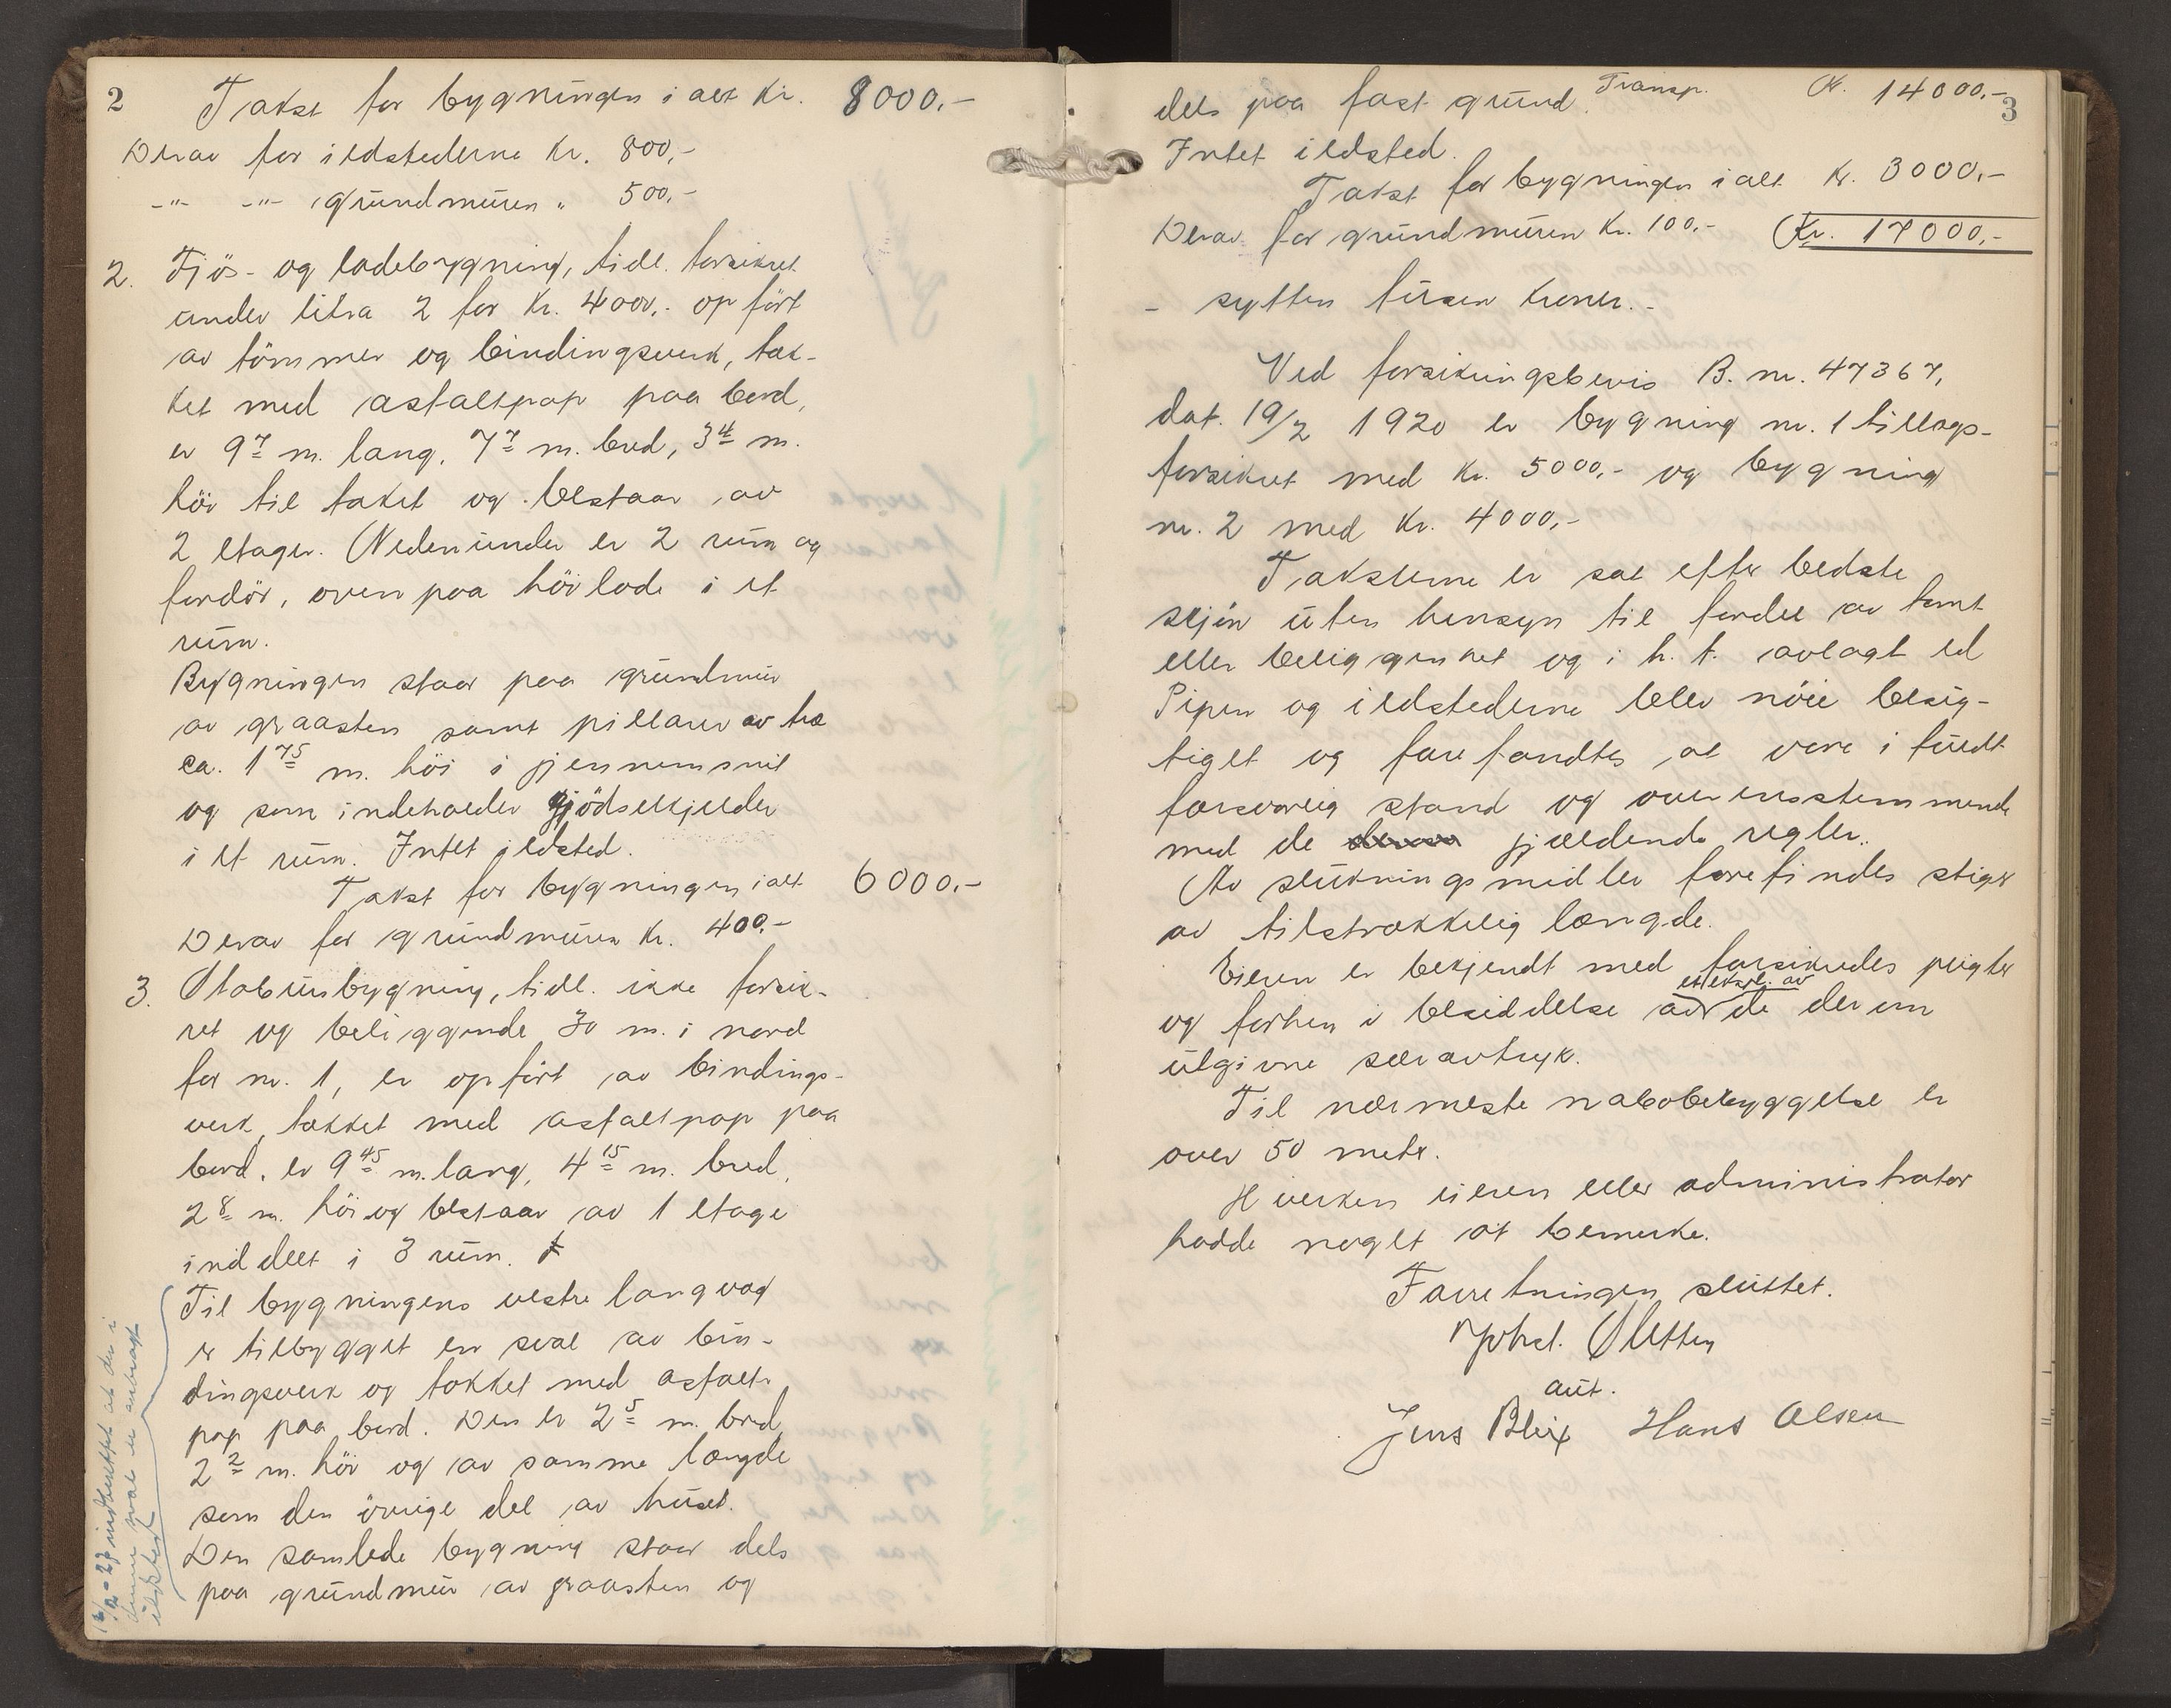 2
Takst for bygningen i alt Kr. 8000,-
Derav for ildstederne Kr. 800,-
-"- -"- grundmuren " 500,-
2. Fjös- og ladebygning, tidl. forsikret
under litra 2 for Kr. 4000,- opfört
av tömmer og bindingsverk, tæk-
ket med asfaltpap paa bord,
er 9⁷ m. lang, 7⁷ m. bred, 3⁴ m.
höi til taket og bestaar av
2 etager. Nedenunder er 2 rum og
fordör, ovenpaa höilade i et
rum.
Bygningen staar paa grundmur
av graasten samt pillarer av træ
ca. 1⁷⁵ m. höi i gjennemsnit
og som indeholder gjödselkjelder
i et rum. Intet ildsted.
Takst for bygningen ialt 6000,-
Derav for grundmuren Kr. 400,-
3. Stabursbygning, tidl. ikke forsik-
ret og beliggende 30 m. i nord
for nr. 1, er opfört av bindings-
verk, tækket med asfaltpap paa
bord, er 9⁴⁵ m. lang, 4¹⁵ m. bred,
2⁸ m. höi og bestaar av 1 etage
inddelt i 3 rum.
Til bygningens vestre langvæg
er tilbygget en sval av bin-
dingsverk og tækket med asfalt-
pap paa bord. Den er 2⁵ m. bred,
2² m. höi og av samme længde
som den övrige del av huset.
Den samlede bygning staar dels
paa grundmur av graasten og
denne sval er
3
dels paa fast grund. Transp. Kr. 14000,-
Intet ildsted.
Takst for bygningen ialt Kr. 3000,-
Derav for grundmuren Kr. 100,- Kr. 17000,-
- sytten tusen kroner. -
Ved forsikringsbevis B. nr. 47367,
dat. 19/2 1920 er bygning nr. 1 tillægs-
forsikret med Kr. 5000,- og bygning
nr. 2 med Kr. 4000,-
Taksterne er sat efter bedste
skjön uten hensyn til fordel av tomt
eller beliggenhet og i h. t. avlagt ed
Pipen og ildstederne blev nöie besig-
tiget og forefandtes at være i fuldt
forsvarlig stand og overensstemmende
med de gjældende regler.
Av slukningsmidler forefindes stiger
av tilstrækkelig længde.
Eieren er bekjendt med forsikredes pligter
et ekspl. av
og forhen i besiddelse av de derom
utgivne særavtryk.
Til nærmeste nabobebyggelse er
over 50 meter.
Hverken eieren eller administrator
hadde noget at bemerke.
Forretningen sluttet.
Sletten
aut.
Jens Blix Hans Olsen